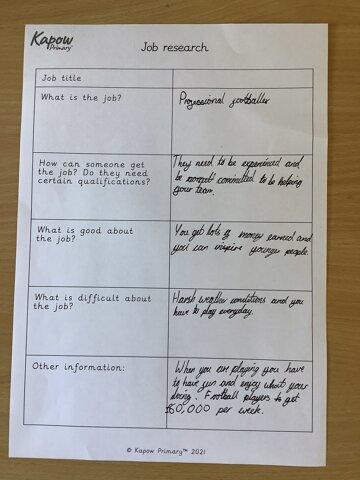 Kapow
Primary™
Job research
Job title
What is the job?
Professional footballer
How can someone get
the job? Do they need
certain qualifications?
They need to be experienced and
be committed to be helping
your team.
What is good about
the job?
You get lots of money earned and
you can inspire younger people.
What is difficult about
the job?
Harsh weather conditions and you
have to play everyday.
Other information:
When you are playing you have
to have fun and enjoy what your
doing. Football players to get
60,000 per week.
© Kapow Primary™ 2021